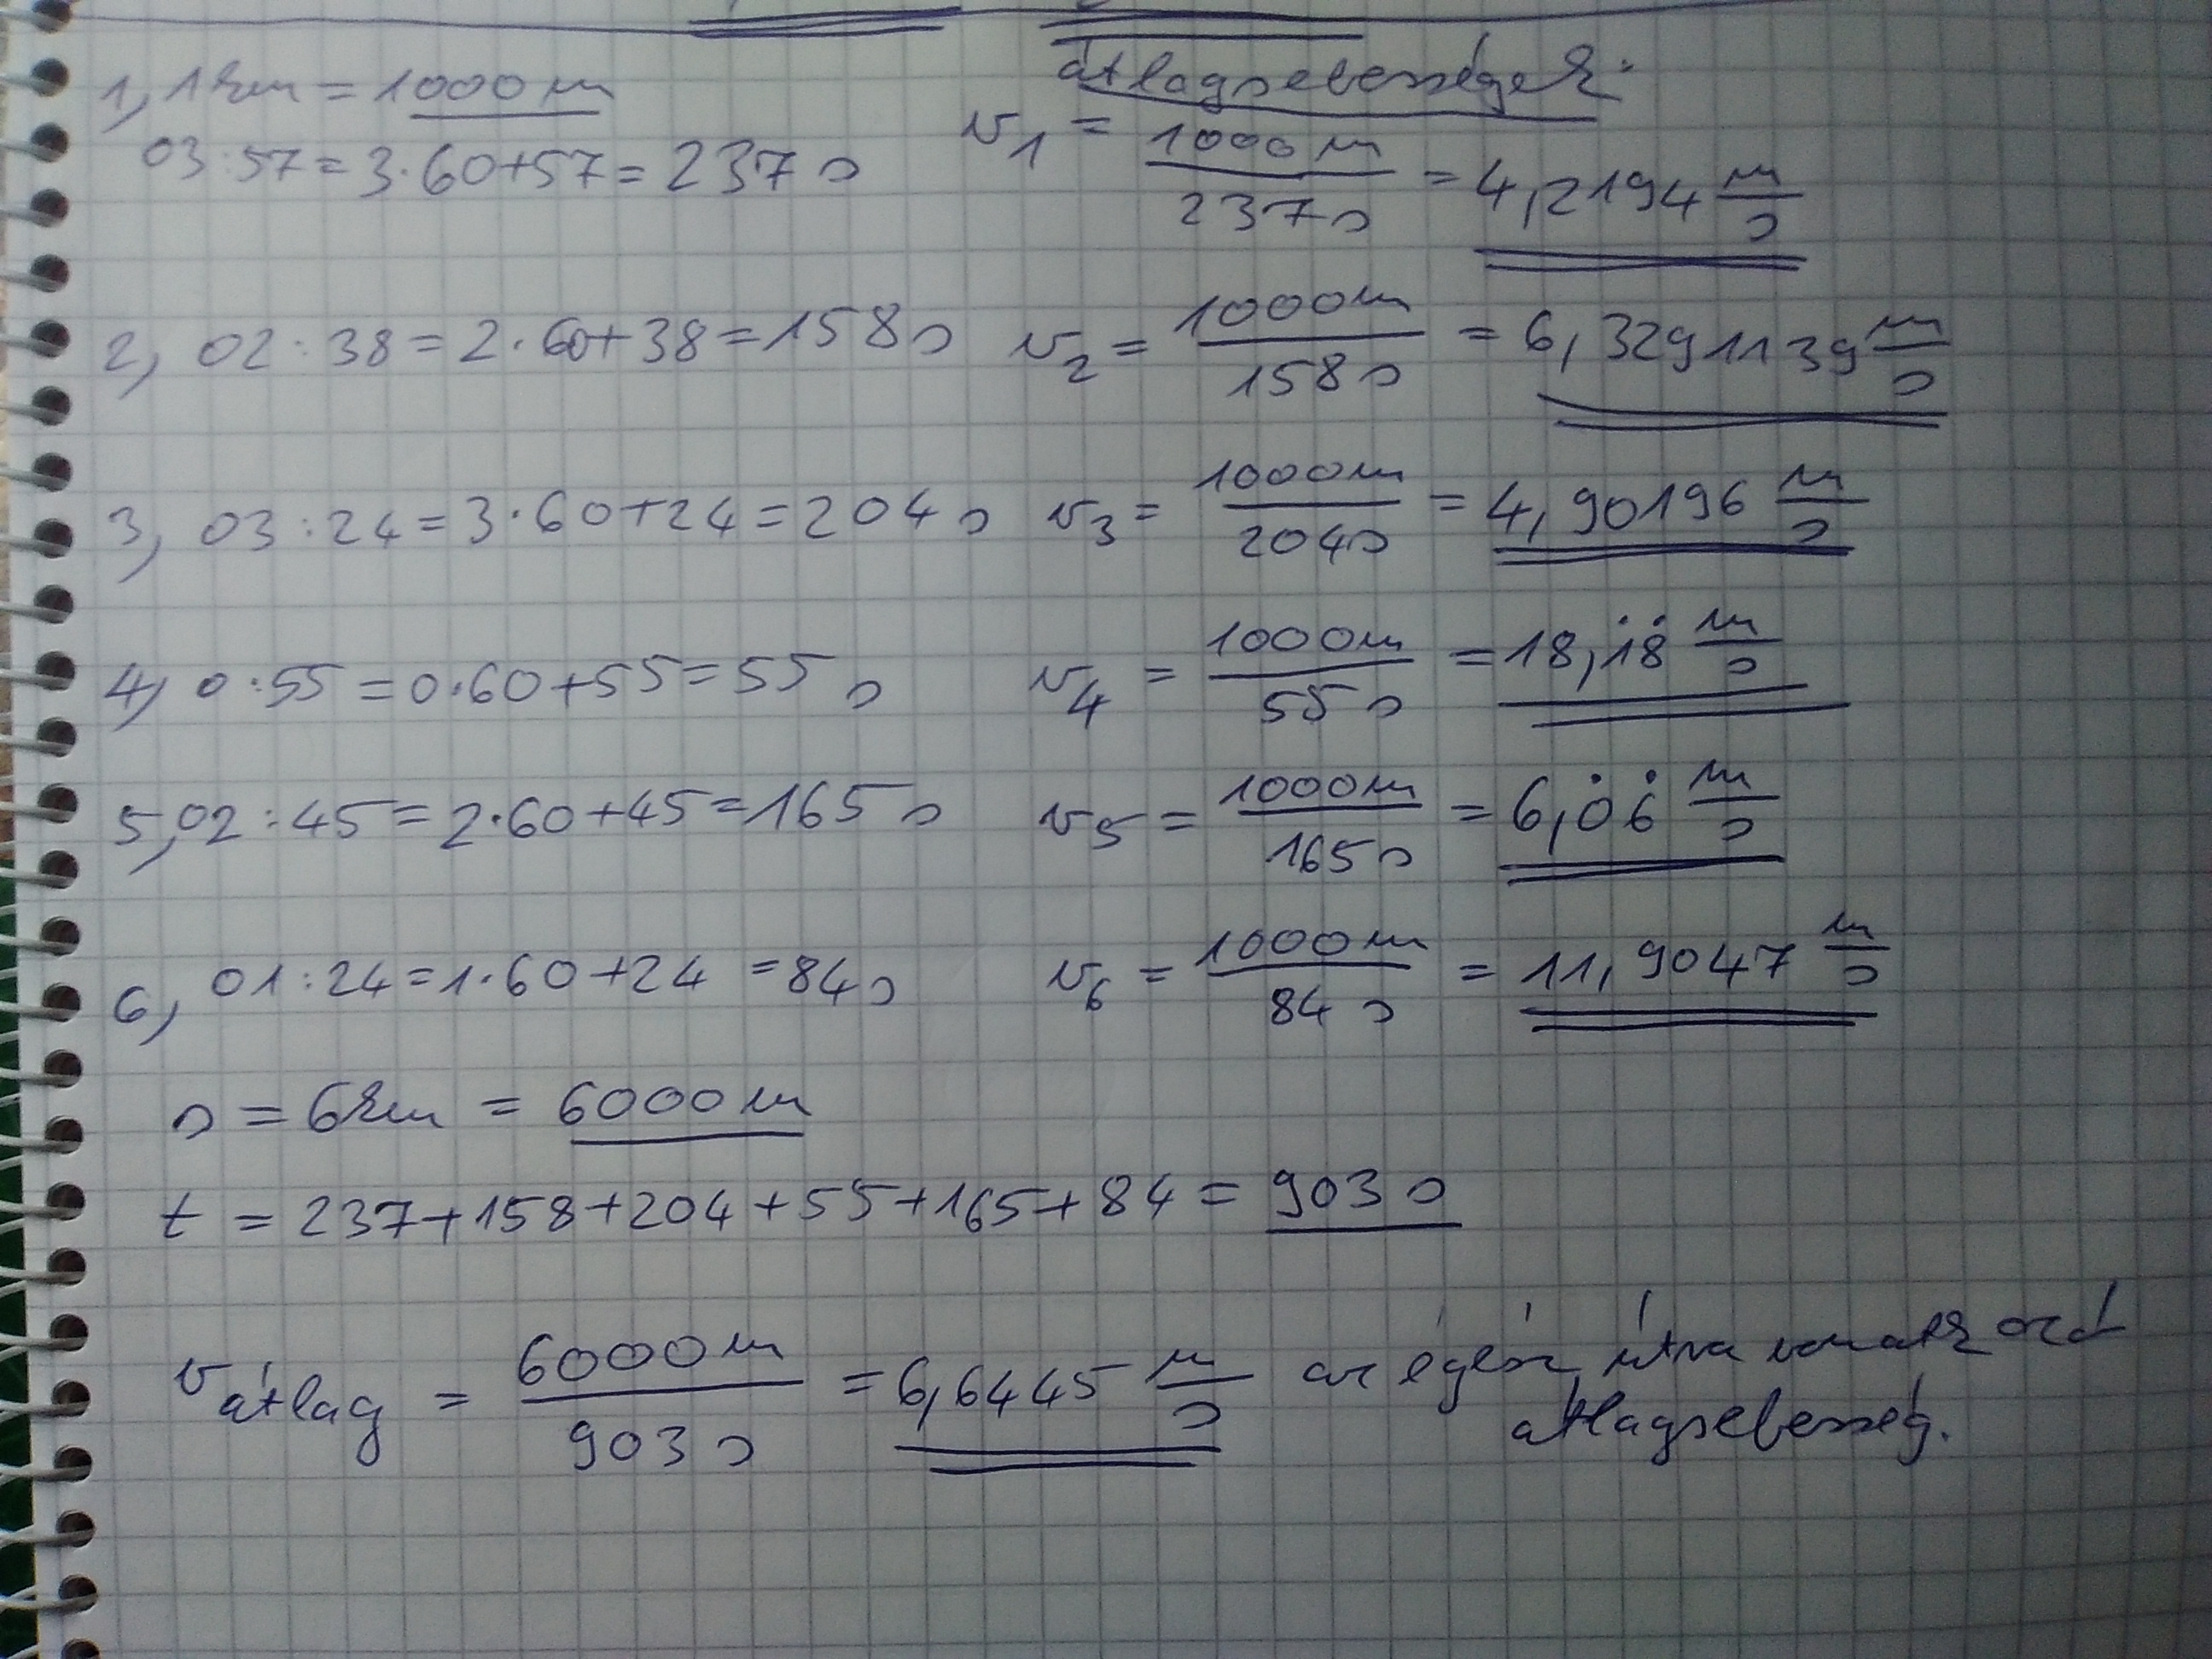 átlagsebességek:
1, 1km = 1000 m
03:57 = 3·60+57 = 237 s v₁ = 1000 m / 237 s = 4,2194 m/s
2, 02:38 = 2·60+38 = 158 s v₂ = 1000m / 158 s = 6,3291139 m/s
3, 03:24 = 3·60+24 = 204 s v₃ = 1000m / 204 s = 4,90196 m/s
4, 0:55 = 0·60+55 = 55 s v₄ = 1000m / 55 s = 18,1̇8̇ m/s
5, 02:45 = 2·60+45 = 165 s v₅ = 1000m / 165 s = 6,0̇6̇ m/s
6, 01:24 = 1·60+24 = 84 s v₆ = 1000 m / 84 s = 11,9047 m/s
s = 6km = 6000 m
t = 237+158+204+55+165+84 = 903 s
v átlag = 6000 m / 903 s = 6,6445 m/s az egész útra vonatkozó
átlagsebesség.